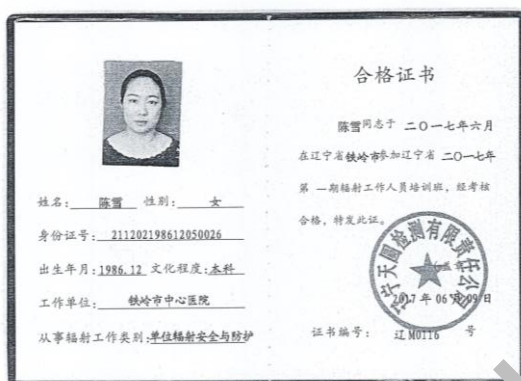 姓名：陈雪 性别：女
身份证号：211202198612050026
出生年月：1986.12 文化程度：本科
工作单位：铁岭市中心医院
从事辐射工作类别：单位辐射安全与防护
合格证书
陈雪同志于 二〇一七年六月
在辽宁省铁岭市参加辽宁省 二〇一七年
第 一期辐射工作人员培训班，经考核
合格，特发此证。
辽宁天圆检测有限责任公司
2017 年 06 月 09 日
证书编号：辽 M0116 号